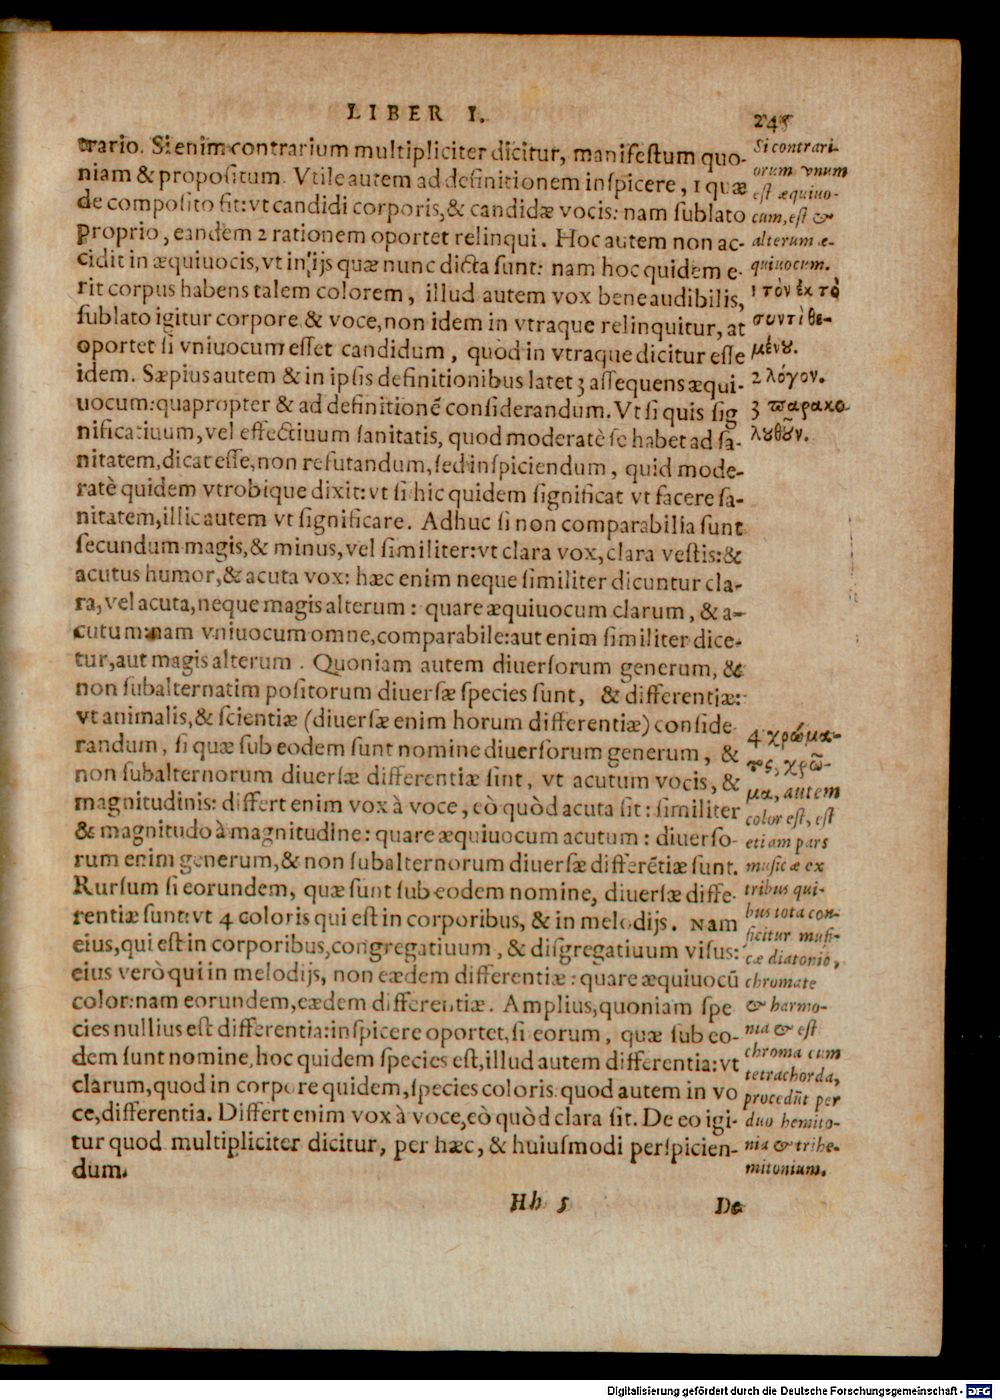 LIBER I.
245
trario. Si enim contrarium multipliciter dicitur, manifeſtum quo-
niam & propoſitum. Vtile autem ad definitionem inſpicere, 1 quæ
de compoſito fit: vt candidi corporis, & candidæ vocis: nam ſublato
proprio, eandem 2 rationem oportet relinqui. Hoc autem non ac-
cidit in æquiuocis, vt in ijs quæ nunc dicta ſunt: nam hoc quidem e-
rit corpus habens talem colorem, illud autem vox bene audibilis,
ſublato igitur corpore & voce, non idem in vtraque relinquitur, at
oportet ſi vniuocum eſſet candidum, quòd in vtraque dicitur eſſe
idem. Sæpius autem & in ipſis definitionibus latet 3 aſſequens æqui-
uocum: quapropter & ad definitionẽ conſiderandum. Vt ſi quis ſig
nificatiuum, vel effectiuum ſanitatis, quod moderatè ſe habet ad ſa-
nitatem, dicat eſſe, non refutandum, ſed inſpiciendum, quid mode-
ratè quidem vtrobique dixit: vt ſi hic quidem ſignificat vt facere ſa-
nitatem, illic autem vt ſignificare. Adhuc ſi non comparabilia ſunt
ſecundum magis, & minus, vel ſimiliter: vt clara vox, clara veſtis: &
acutus humor, & acuta vox: hæc enim neque ſimiliter dicuntur cla-
ra, vel acuta, neque magis alterum: quare æquiuocum clarum, & a-
cutum: nam vniuocum omne, comparabile: aut enim ſimiliter dice-
tur, aut magis alterum. Quoniam autem diuerſorum generum, &
non ſubalternatim poſitorum diuerſæ ſpecies ſunt, & differentiæ:
vt animalis, & ſcientiæ (diuerſæ enim horum differentiæ) conſide-
randum, ſi quæ ſub eodem ſunt nomine diuerſorum generum, &
non ſubalternorum diuerſæ differentiæ ſint, vt acutum vocis, &
magnitudinis: differt enim vox à voce, eò quòd acuta ſit: ſimiliter
& magnitudo à magnitudine: quare æquiuocum acutum: diuerſo-
rum enim generum, & non ſubalternorum diuerſæ differẽtiæ ſunt.
Rurſum ſi eorundem, quæ ſunt ſub eodem nomine, diuerſæ diffe-
rentiæ ſunt: vt 4 coloris qui eſt in corporibus, & in melodijs. Nam
eius, qui eſt in corporibus, congregatiuum, & diſgregatiuum viſus:
eius verò qui in melodijs, non eædem differentiæ: quare æquiuocũ
color: nam eorundem, eædem differentiæ. Amplius, quoniam ſpe
cies nullius eſt differentia: inſpicere oportet, ſi eorum, quæ ſub eo-
dem ſunt nomine, hoc quidem ſpecies eſt, illud autem differentia: vt
clarum, quod in corpore quidem, ſpecies coloris: quod autem in vo
ce, differentia. Differt enim vox à voce, eò quòd clara ſit. De eo igi-
tur quod multipliciter dicitur, per hæc, & huiuſmodi perſpicien-
dum.
Hh 5
De
Si contrari-
orum vnum
eſt æquiuo-
cum, eſt &
alterum æ-
quiuocum.
1 τὸν ἐκ τȣ͂
συντιθε-
μένȣ.
2 λόγον.
3 παρακο-
λȣθȣ͂ν.
4 χρώμα-
τος, χρῶ-
μα, autem
color eſt, eſt
etiam pars
muſicæ ex
tribus qui-
bus tota con-
ficitur muſi-
cæ diatonio,
chromate
& harmo-
nia & eſt
chroma cum
tetrachorda,
procedũt per
duo hemito-
nia & trihe-
mitonium.
Digitalisierung gefördert durch die Deutsche Forschungsgemeinschaft - DFG